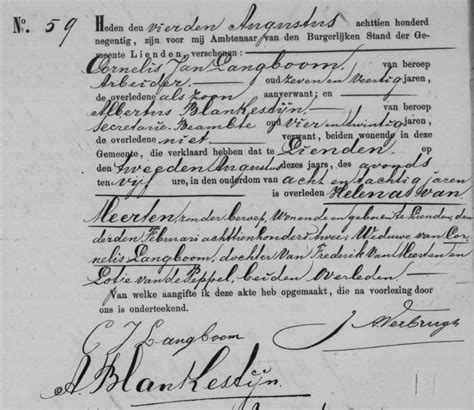 No. 59
Heden den vierden Augustus achttien honderd
negentig, zijn voor mij Ambtenaar van den Burgerlijken Stand der Ge-
meente Lienden, verschenen:
Cornelis Jan Langboom, van beroep
Arbeider, oud zeven en Veertig jaren,
de overledene als zoon aanverwant; en
Albertus Blankestijn, van beroep
Secretarie Beambte oud Vier en twintig jaren,
de overledene niet verwant, beiden wonende in deze
Gemeente, die verklaard hebben dat te Lienden,
op den tweeden Augustus dezes jaars, des avonds
ten vijf ure, in den ouderdom van acht en tachtig jaren
is overleden Helena van
Meerten, zonder beroep, Wonende en geboren te Lienden, den
derden Februari achttienhonderd twee, Weduwe van Cor-
nelis Langboom, dochter van Frederik van Meerten en
van de Peppel, beiden Overleden
Van welke aangifte ik deze akte heb opgemaakt, die na voorlezing door
ons is onderteekend.
C J Langboom
A. Blankestijn.